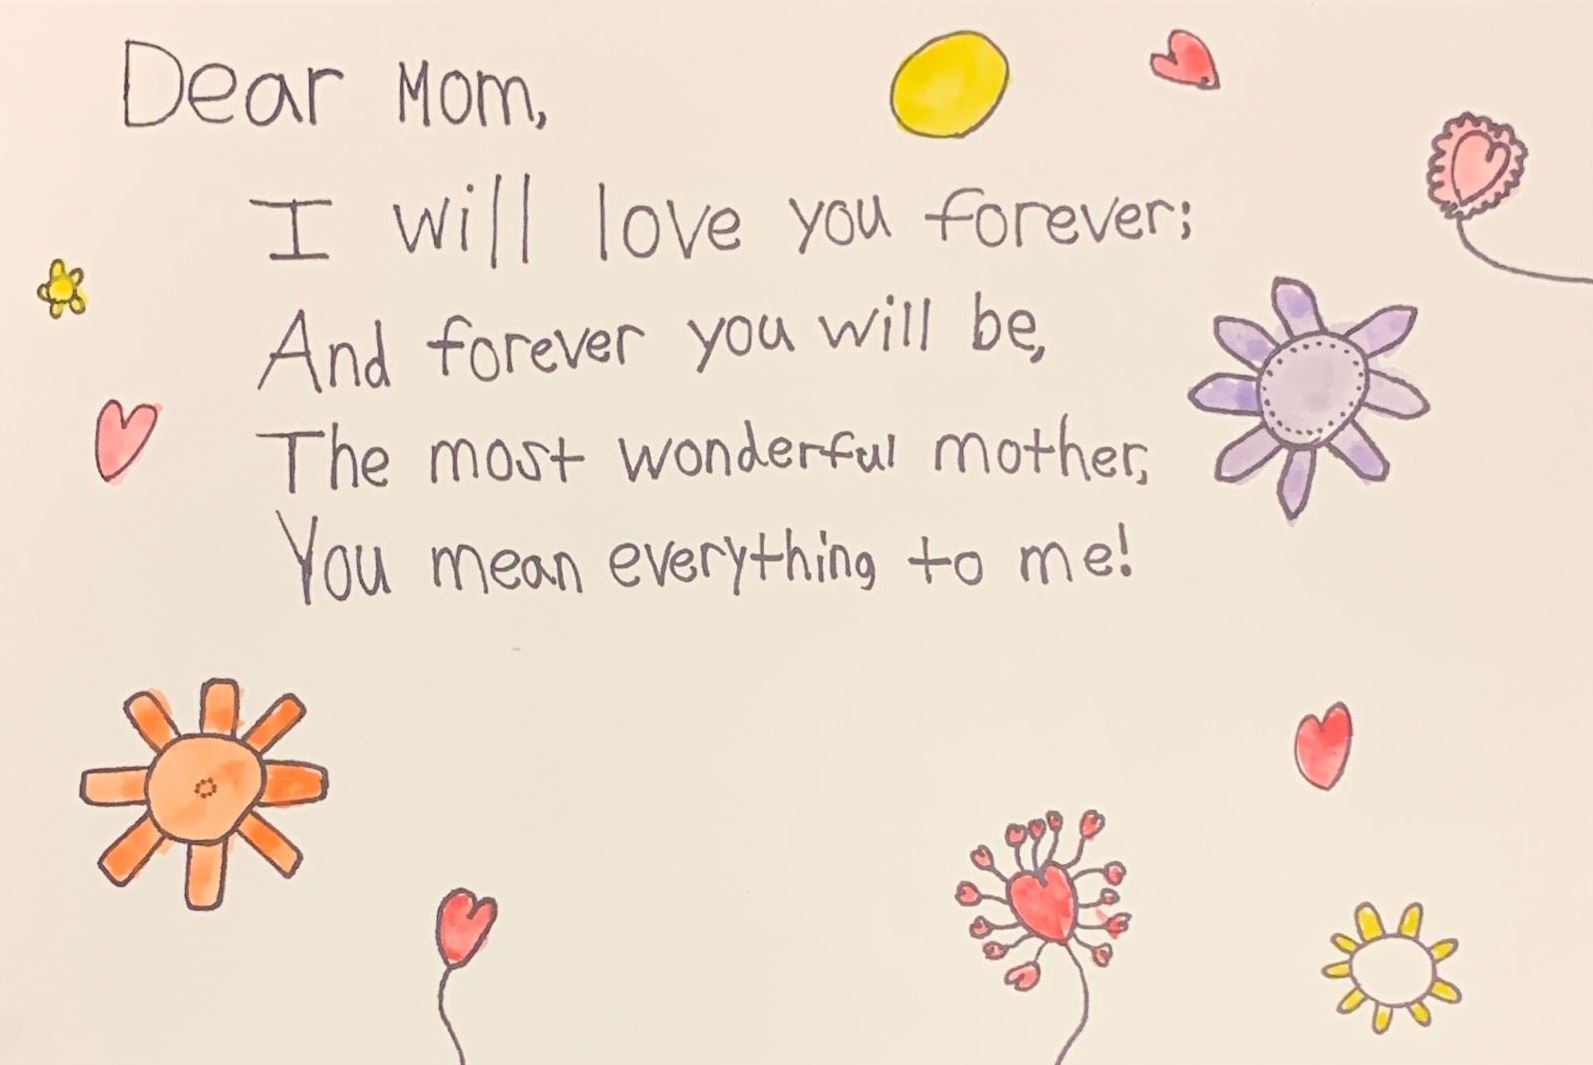 Dear Mom,
I will love you forever;
And forever you will be,
The most wonderful mother,
You mean everything to me!